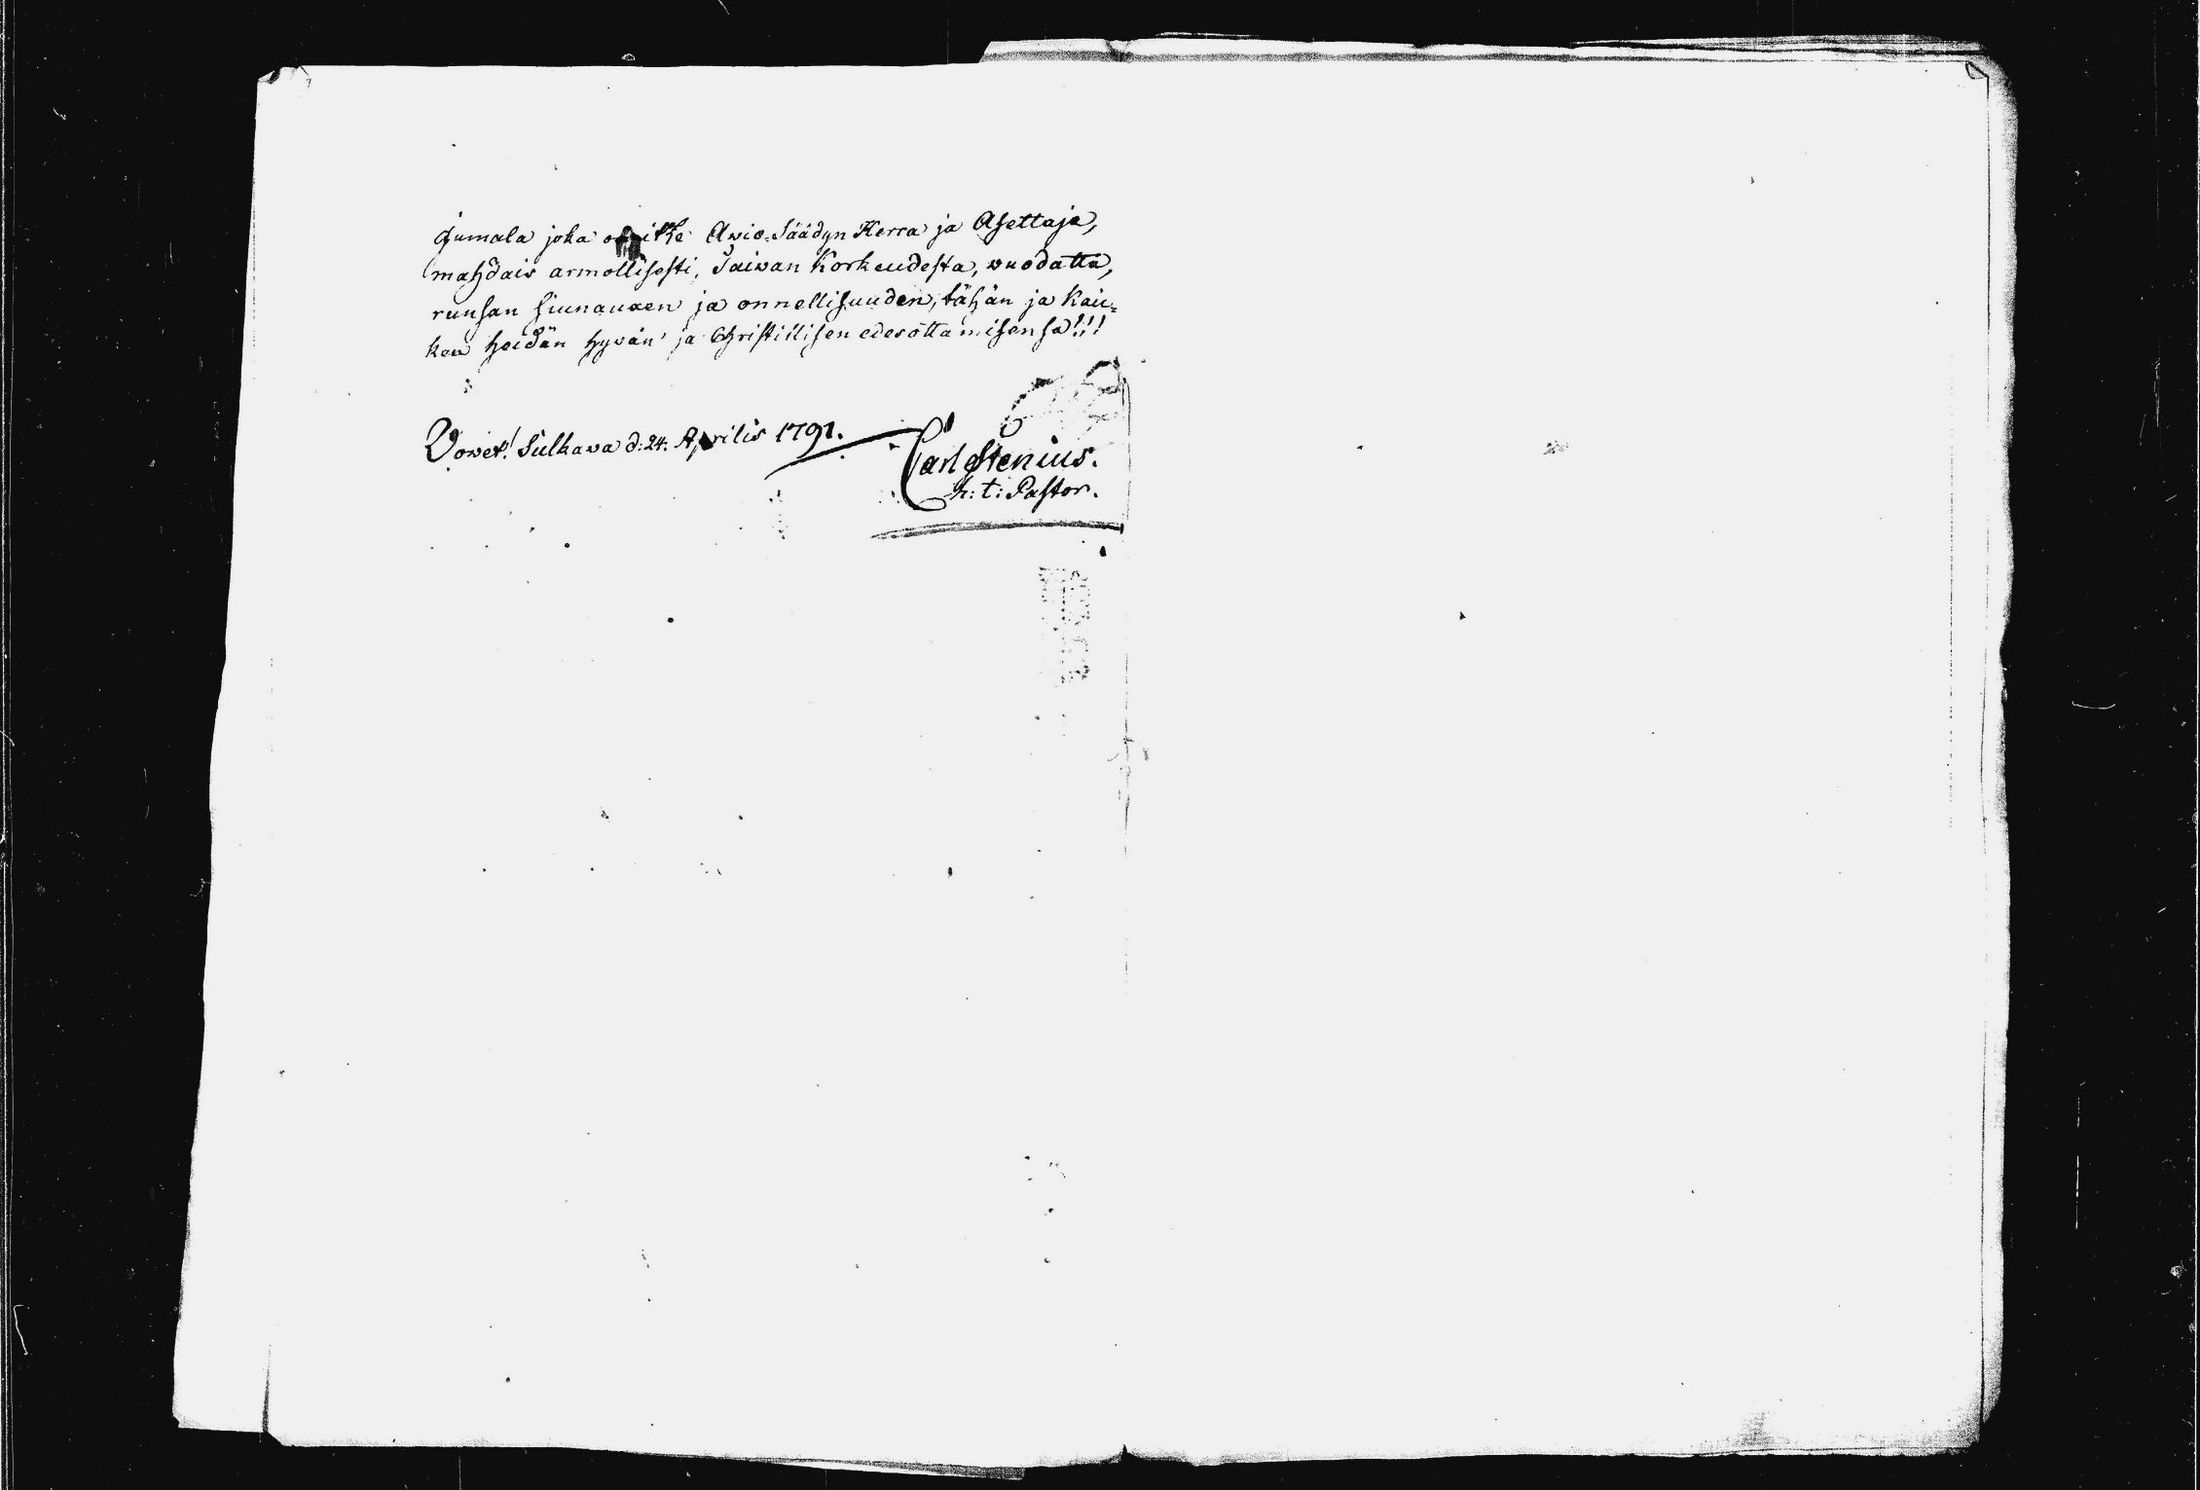 Jumala joka itke Awio-Säädyn Herra ja Asettaja,
mahdais armollisesti, Taiwan Korkeudesta, wuodatta,
runsan siunauxen ja onnellisuuden, tähän ja kaic=
ken heidän hywän ja Christillisen edesottamisensa!!!
Sulkava d: 24. Aprilis 1791.
Carl Stenius.
h: t: Pastor.